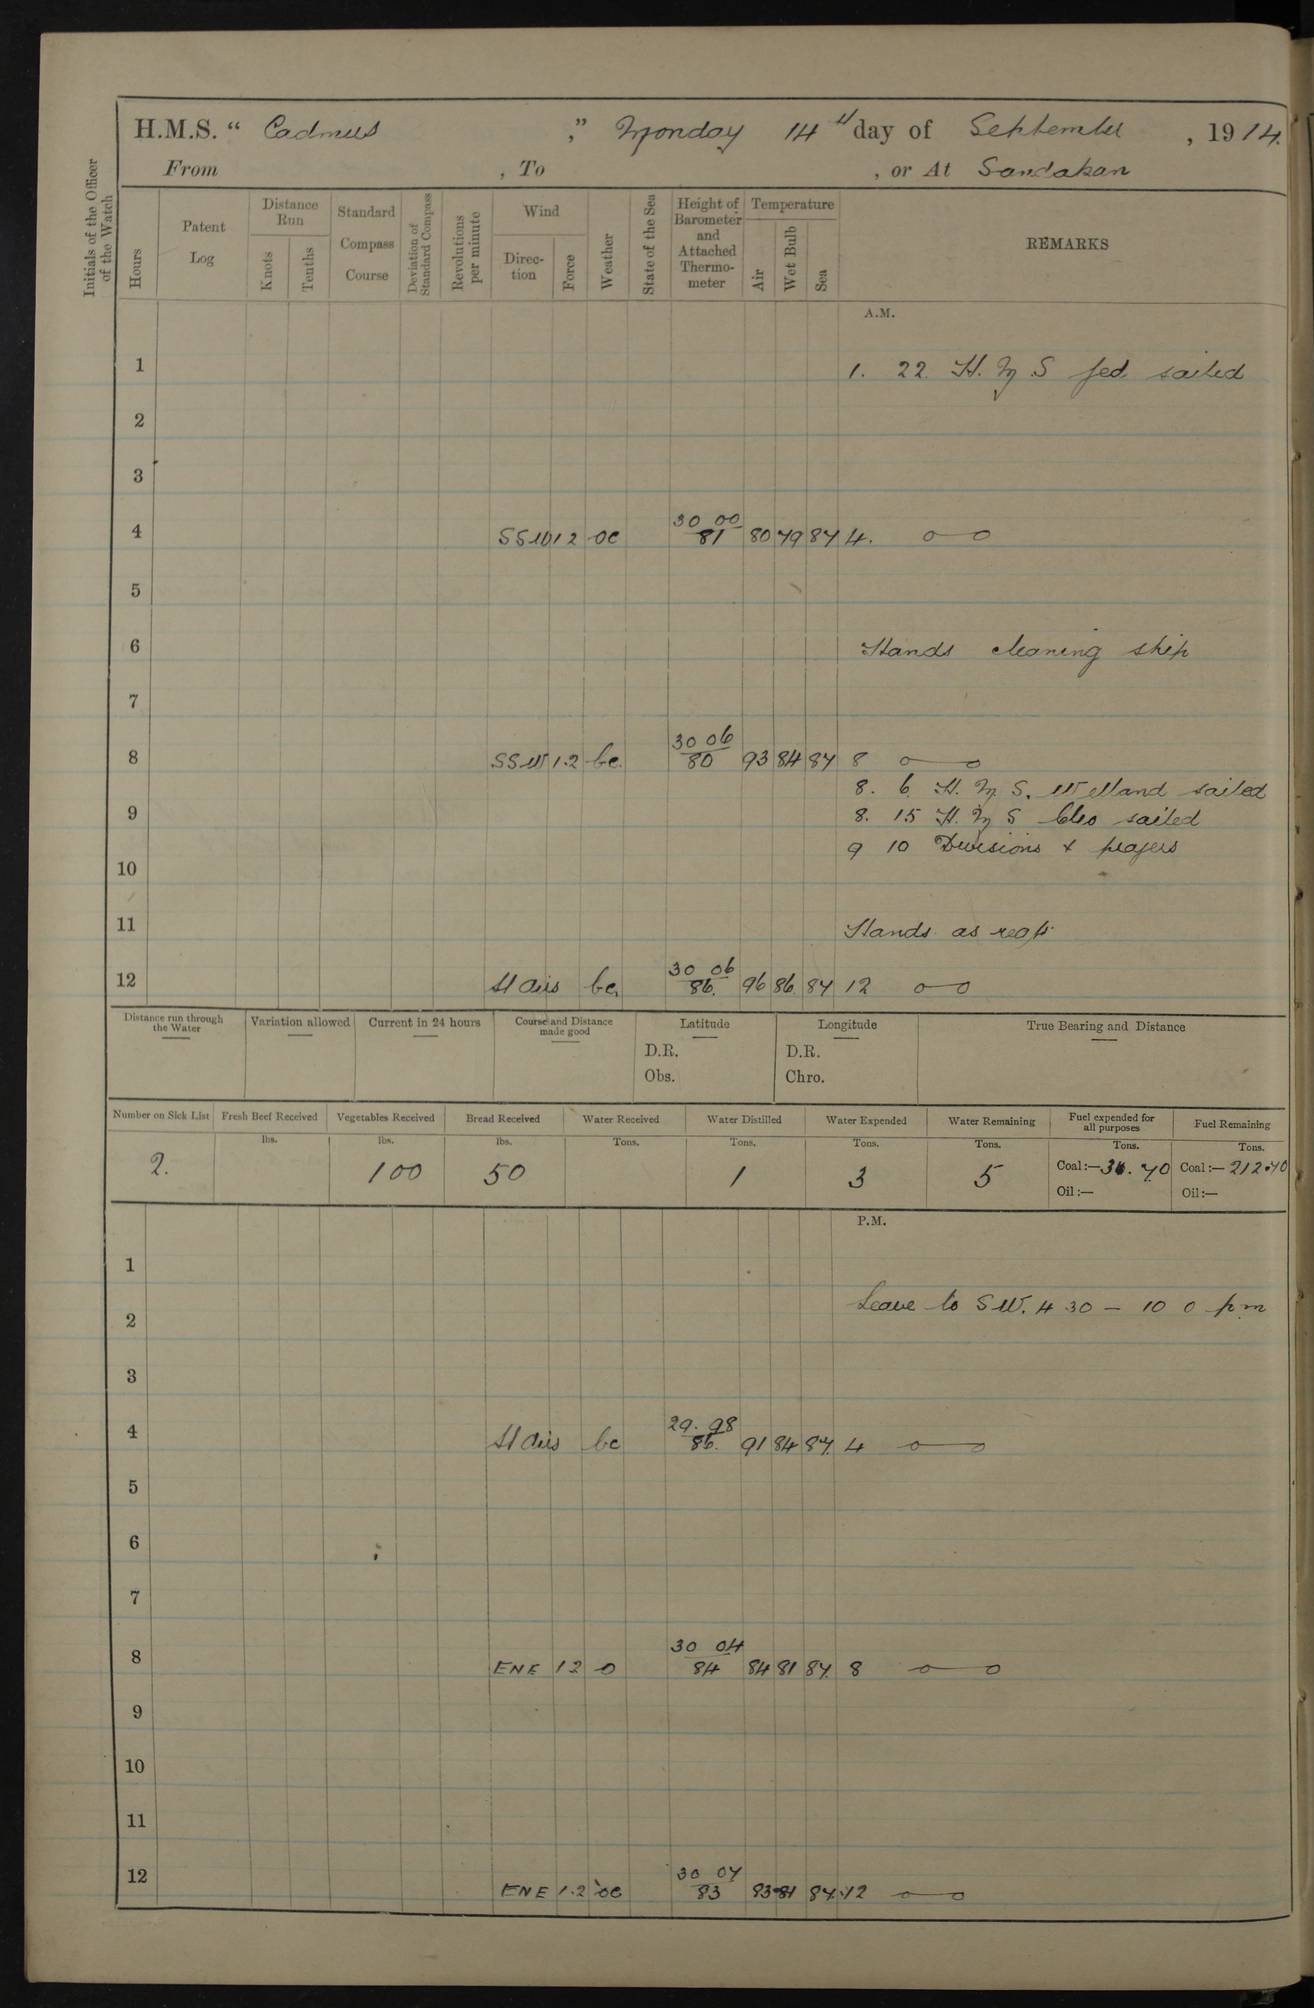 H.M.S. " Cadmus ," Monday 14th day of September , 1914.
From , To , or At Sandakan
Initials of the Officer of the Watch
Hours
Patent Log
Distance Run
Knots
Tenths
Standard Compass Course
Deviation of Standard Compass
Revolutions per minute
Wind
Direc-tion
Force
Weather
State of the Sea
Height of Barometer and Attached Thermo-meter
Temperature
Air
Wet Bulb
Sea
REMARKS
A.M.
1 1. 22. H.M.S Jed sailed
2
3
30 00
4 SSW 1 2 oc 81 80 79 87 4.
5
6 Hands cleaning ship
7
30 06
8 SSW 1.2 bc. 80 93 84 87 8
8. 6 H.M.S. Welland sailed
9 8. 15 H.M.S Clio sailed
9 10 Divisions & prayers
10
11 Hands as reqts.
30 06
12 Al airs bc. 86. 96 86 87 12
Distance run through the Water
Variation allowed
Current in 24 hours
Course and Distance made good
Latitude
D.R.
Obs.
Longitude
D.R.
Chro.
True Bearing and Distance
Number on Sick List Fresh Beef Received Vegetables Received Bread Received Water Received Water Distilled Water Expended Water Remaining Fuel expended for all purposes Fuel Remaining
lbs. lbs. lbs. Tons. Tons. Tons. Tons. Tons. Tons.
2. 100 50 1 3 5 Coal:— .70 Coal:— 212.70
Oil:— Oil:—
P.M.
1
Leave to SW. 4 30 — 10 0 pm
2
3
29. 98
4 Al airs bc 86. 91 84 87. 4
5
6
7
30 04
8 ENE 1 2 o 84 84 81 87. 8
9
10
11
30 07
12 ENE 1.2 oc 83 83 81 87. 12